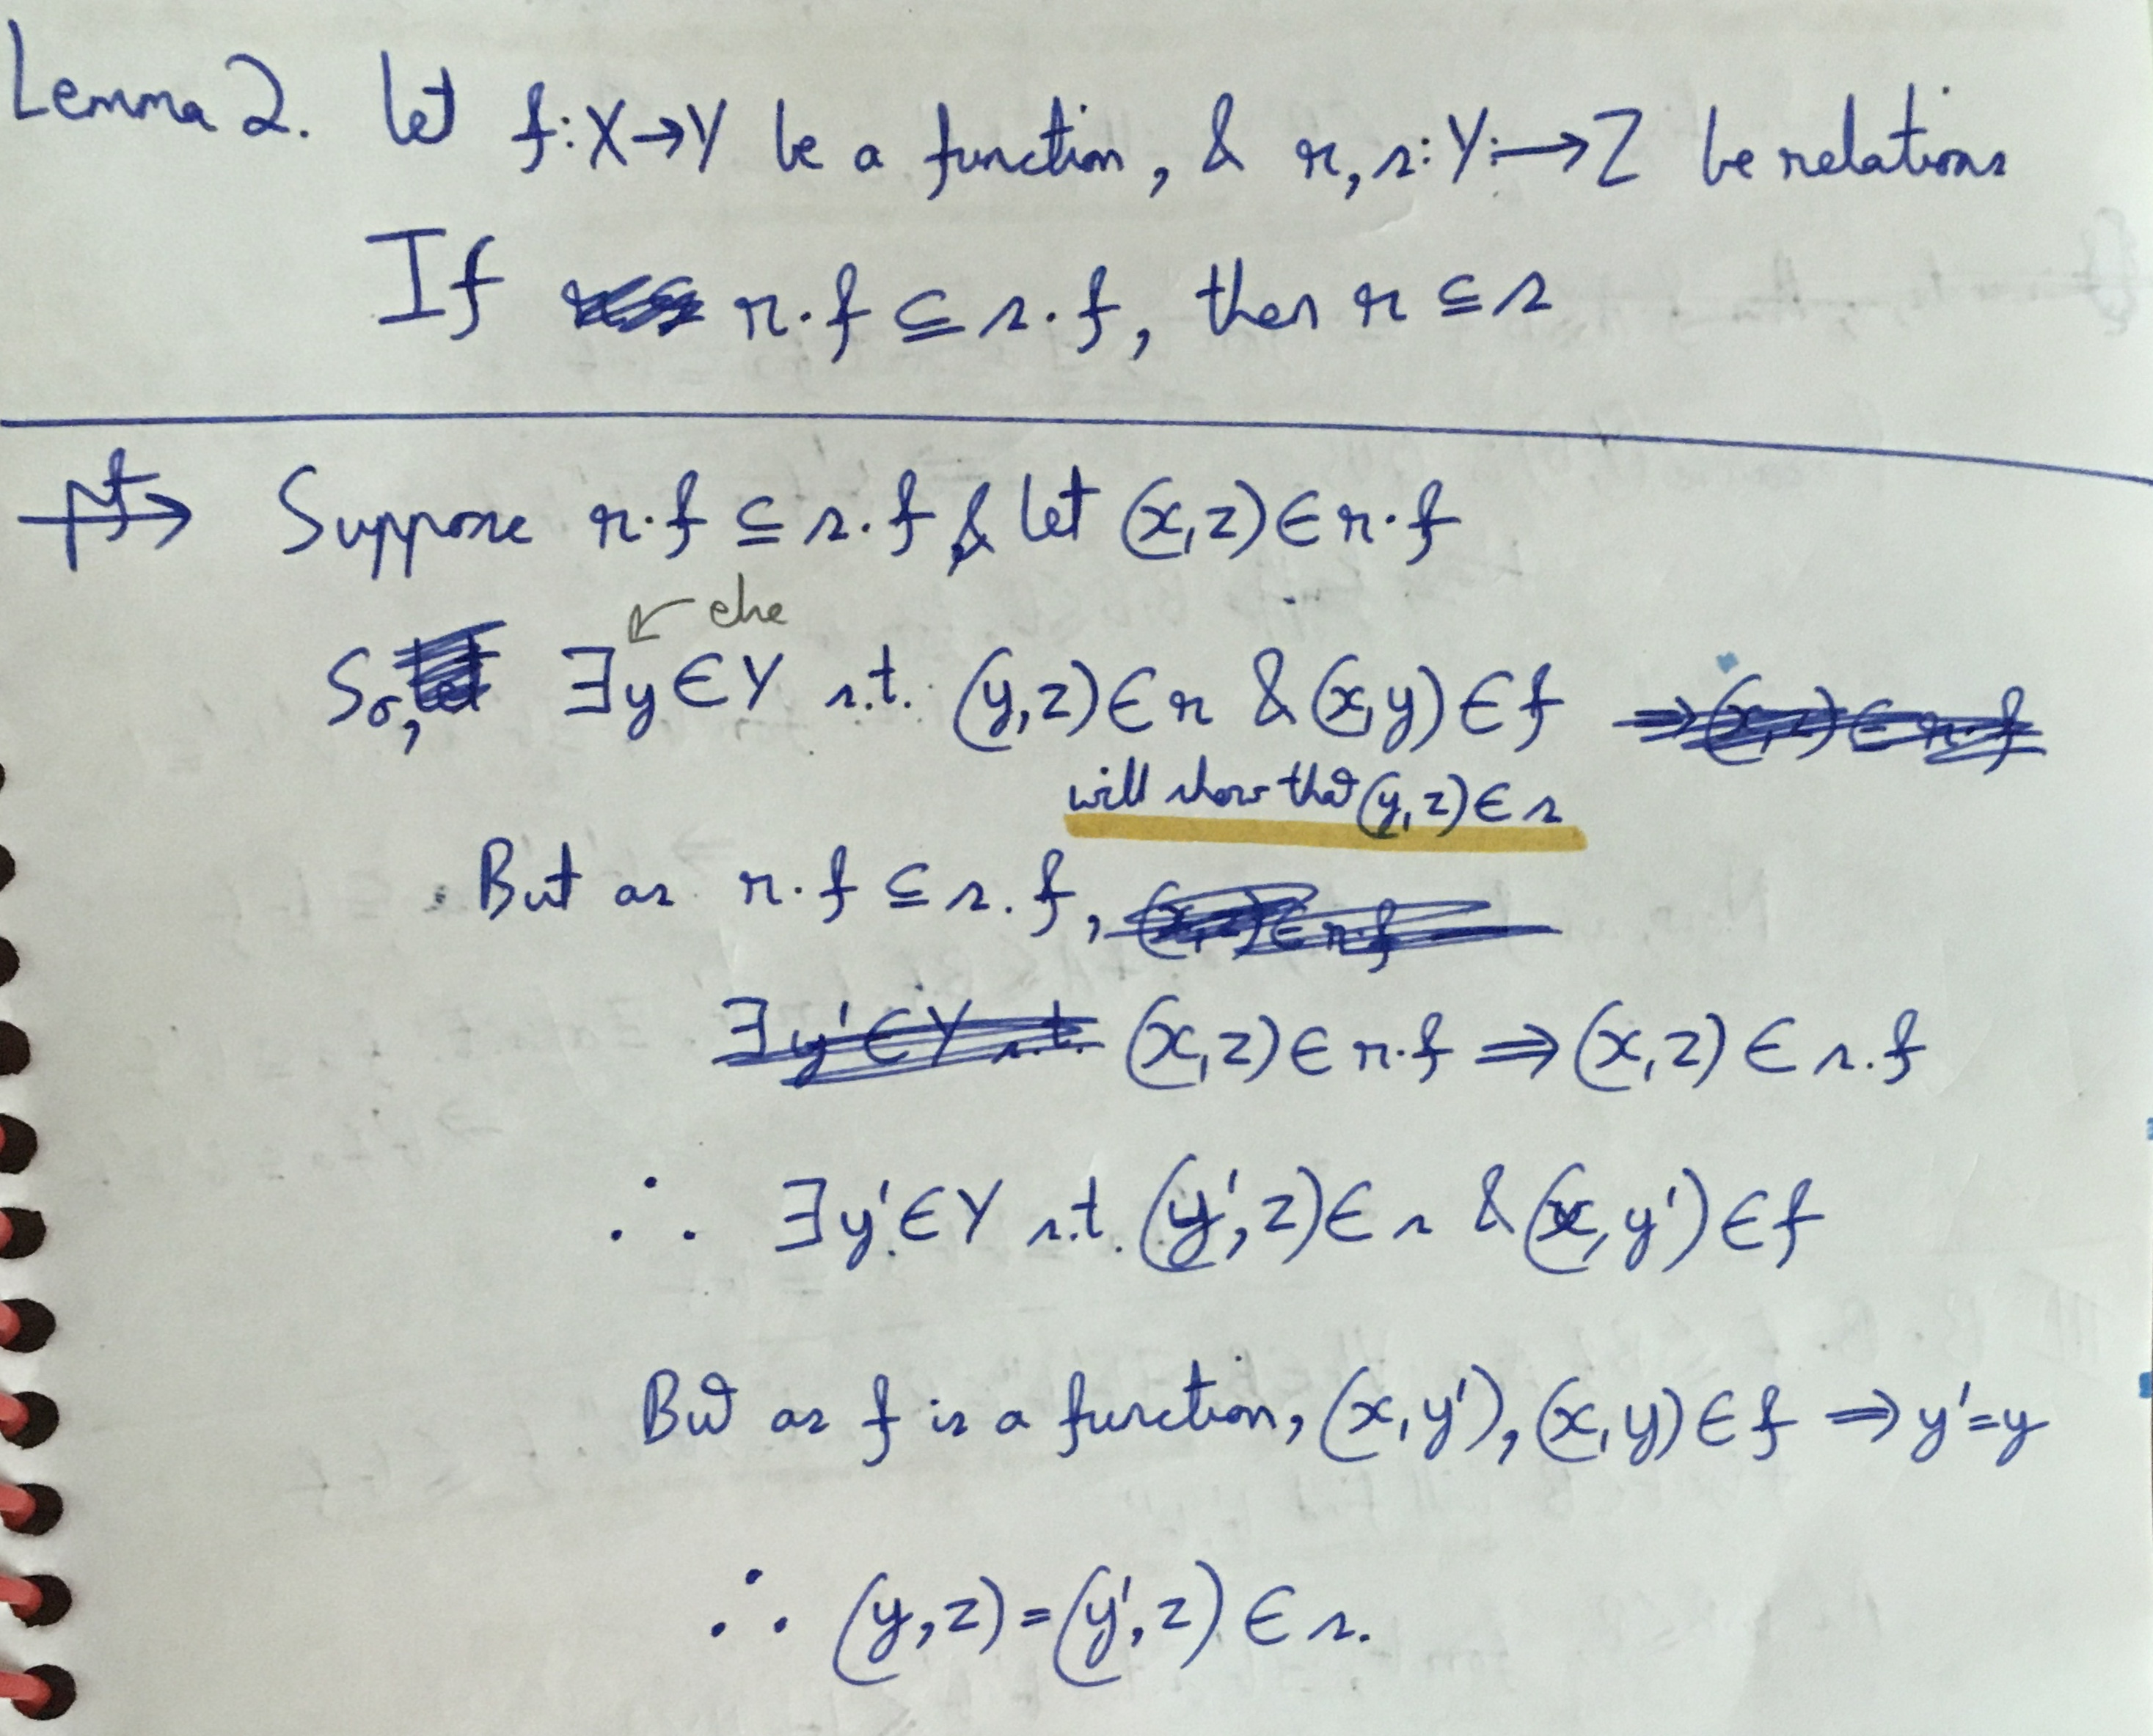 Lemma 2. Let f: X→Y be a function, & r, s: Y⇸Z be relations
If r·f ⊆ s·f, then r ⊆ s
pf→ Suppose r·f ⊆ s·f & let (x,z) ∈ r·f
So, ∃y∈Y s.t. (y,z)∈r & (x,y)∈f
will show that (y,z)∈s
But as r·f ⊆ s·f,
(x,z)∈r·f ⇒ (x,z)∈s·f
∴ ∃y'∈Y s.t. (y',z)∈s & (x,y')∈f
But as f is a function, (x,y'), (x,y)∈f ⇒ y'=y
∴ (y,z)=(y',z)∈s.